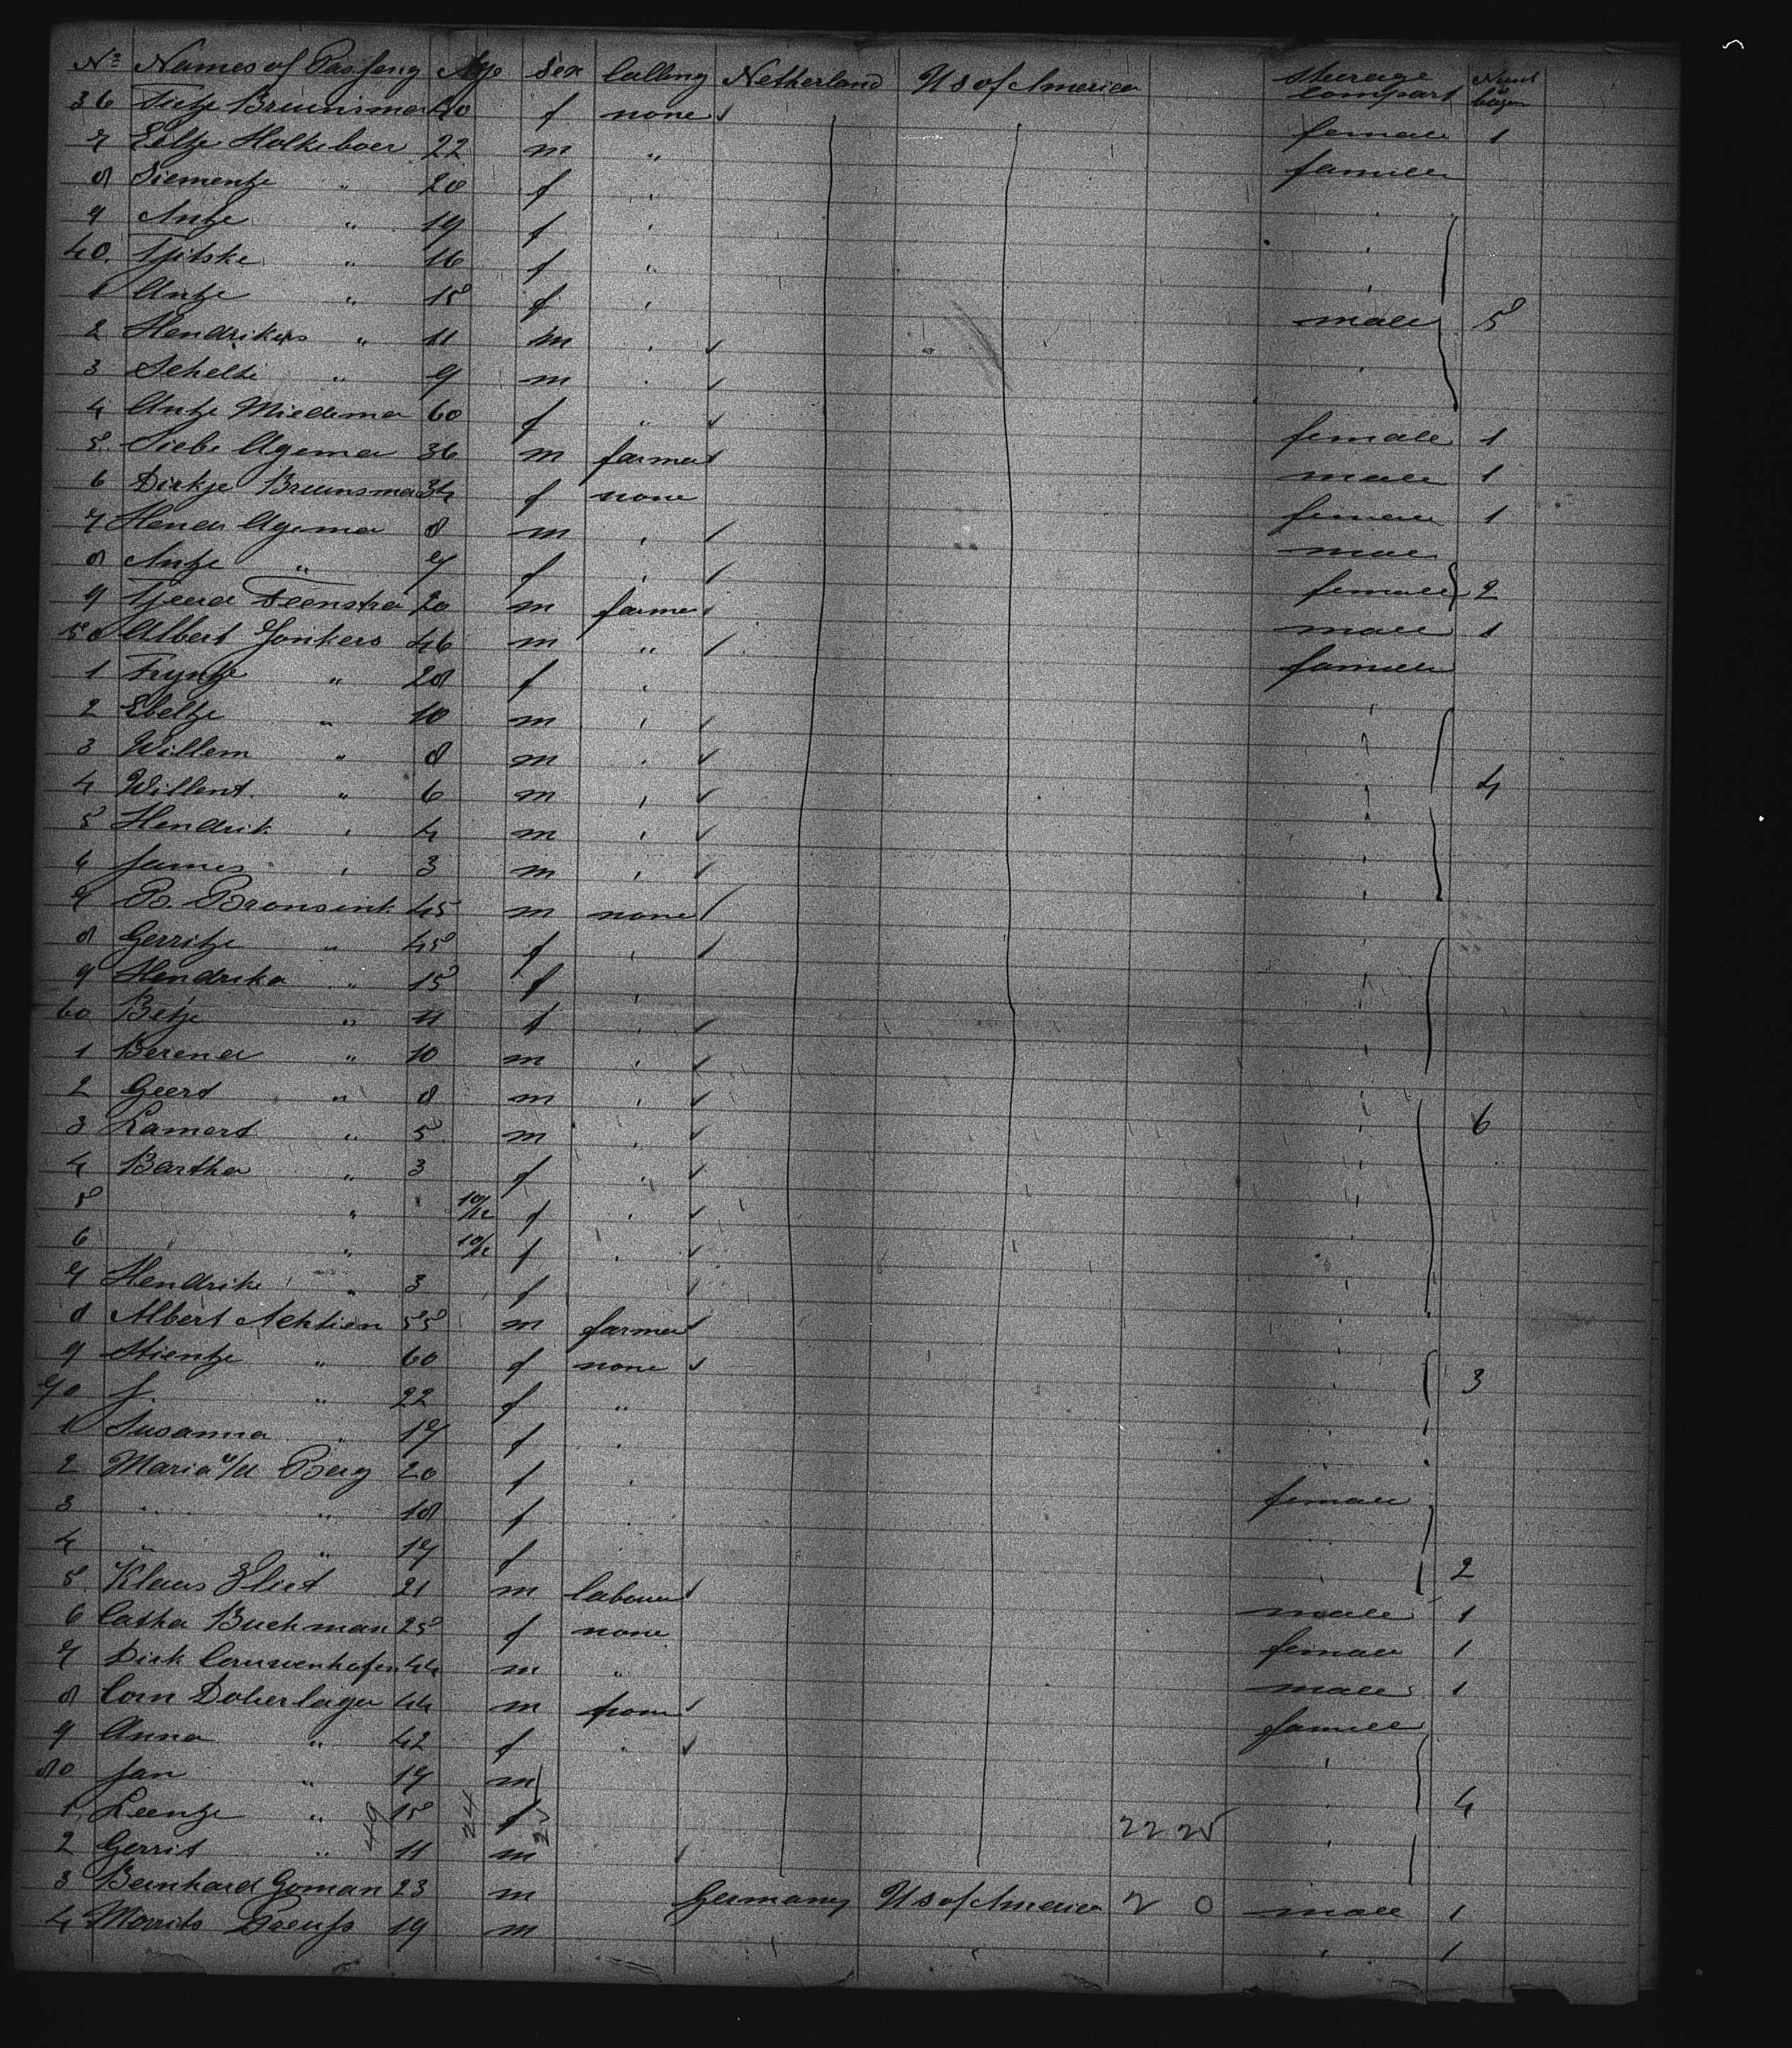 No Names of Passeng Age Sex Calling Netherland Us of America Steerage compart
36 Tietje Bruinsma 40 f none female 1
7 Eeltje Holkeboer 22 m " famile
8 Siementje " 20 f "
9 Antje " 19 f "
40. Tjitske " 16 f "
1 Antje " 15 f "
2 Hendrikus " 11 m " male 5
3 Schelte " 9 m "
4 Antje Miedema 60 f " female 1
5 Siebe Agema 36 m farmer male 1
6 Dirkje Bruinsma 34 f none female 1
7 Hendr Agema 8 m " male
8 Antje " 7 f " female 2
9 Tjeerd Feenstra 20 m farmer male 1
50 Albert Jonkers 46 m " famile
1 Fryntje " 28 f "
2 Ebeltje " 10 m "
3 Willem " 8 m "
4 Willent " 6 m " 4
5 Hendrik " 4 m "
6 James " 3 m "
7 B. Bronsink 45 m none
8 Gerritje " 45 f "
9 Hendrika " 15 f "
60 Betje " 11 f "
1 Berend " 10 m "
2 Geert " 8 m "
3 Lamert " 5 m " 6
4 Bartha " 3 f "
5 " 10/12 f "
6 " 10/12 f "
7 Hendrike " 3 f
8 Albert Achtien 55 m farmer
9 Stientje " 60 f none 3
70 J. " 22 f "
1 Susanna " 17 f "
2 Maria v/d Berg 20 f " female
3 " " 18 f "
4 " " 17 f 2
5 Klaas Vliet 21 m labourer male 1
6 Catha Buchman 25 f none female 1
7 Dirk Couwenhofen 44 m " male 1
8 Corn Doherlager 44 m farm famile
9 Anna " 42 f "
80 Jan " 17 m
1 Leentje " 15 f 22 25 4
2 Gerrit " 11 m
49 24 25
3 Bernhard Goman 23 m Germany Us of America 2 0 male 1
4 Morrits Preuss 19 m " " " 1